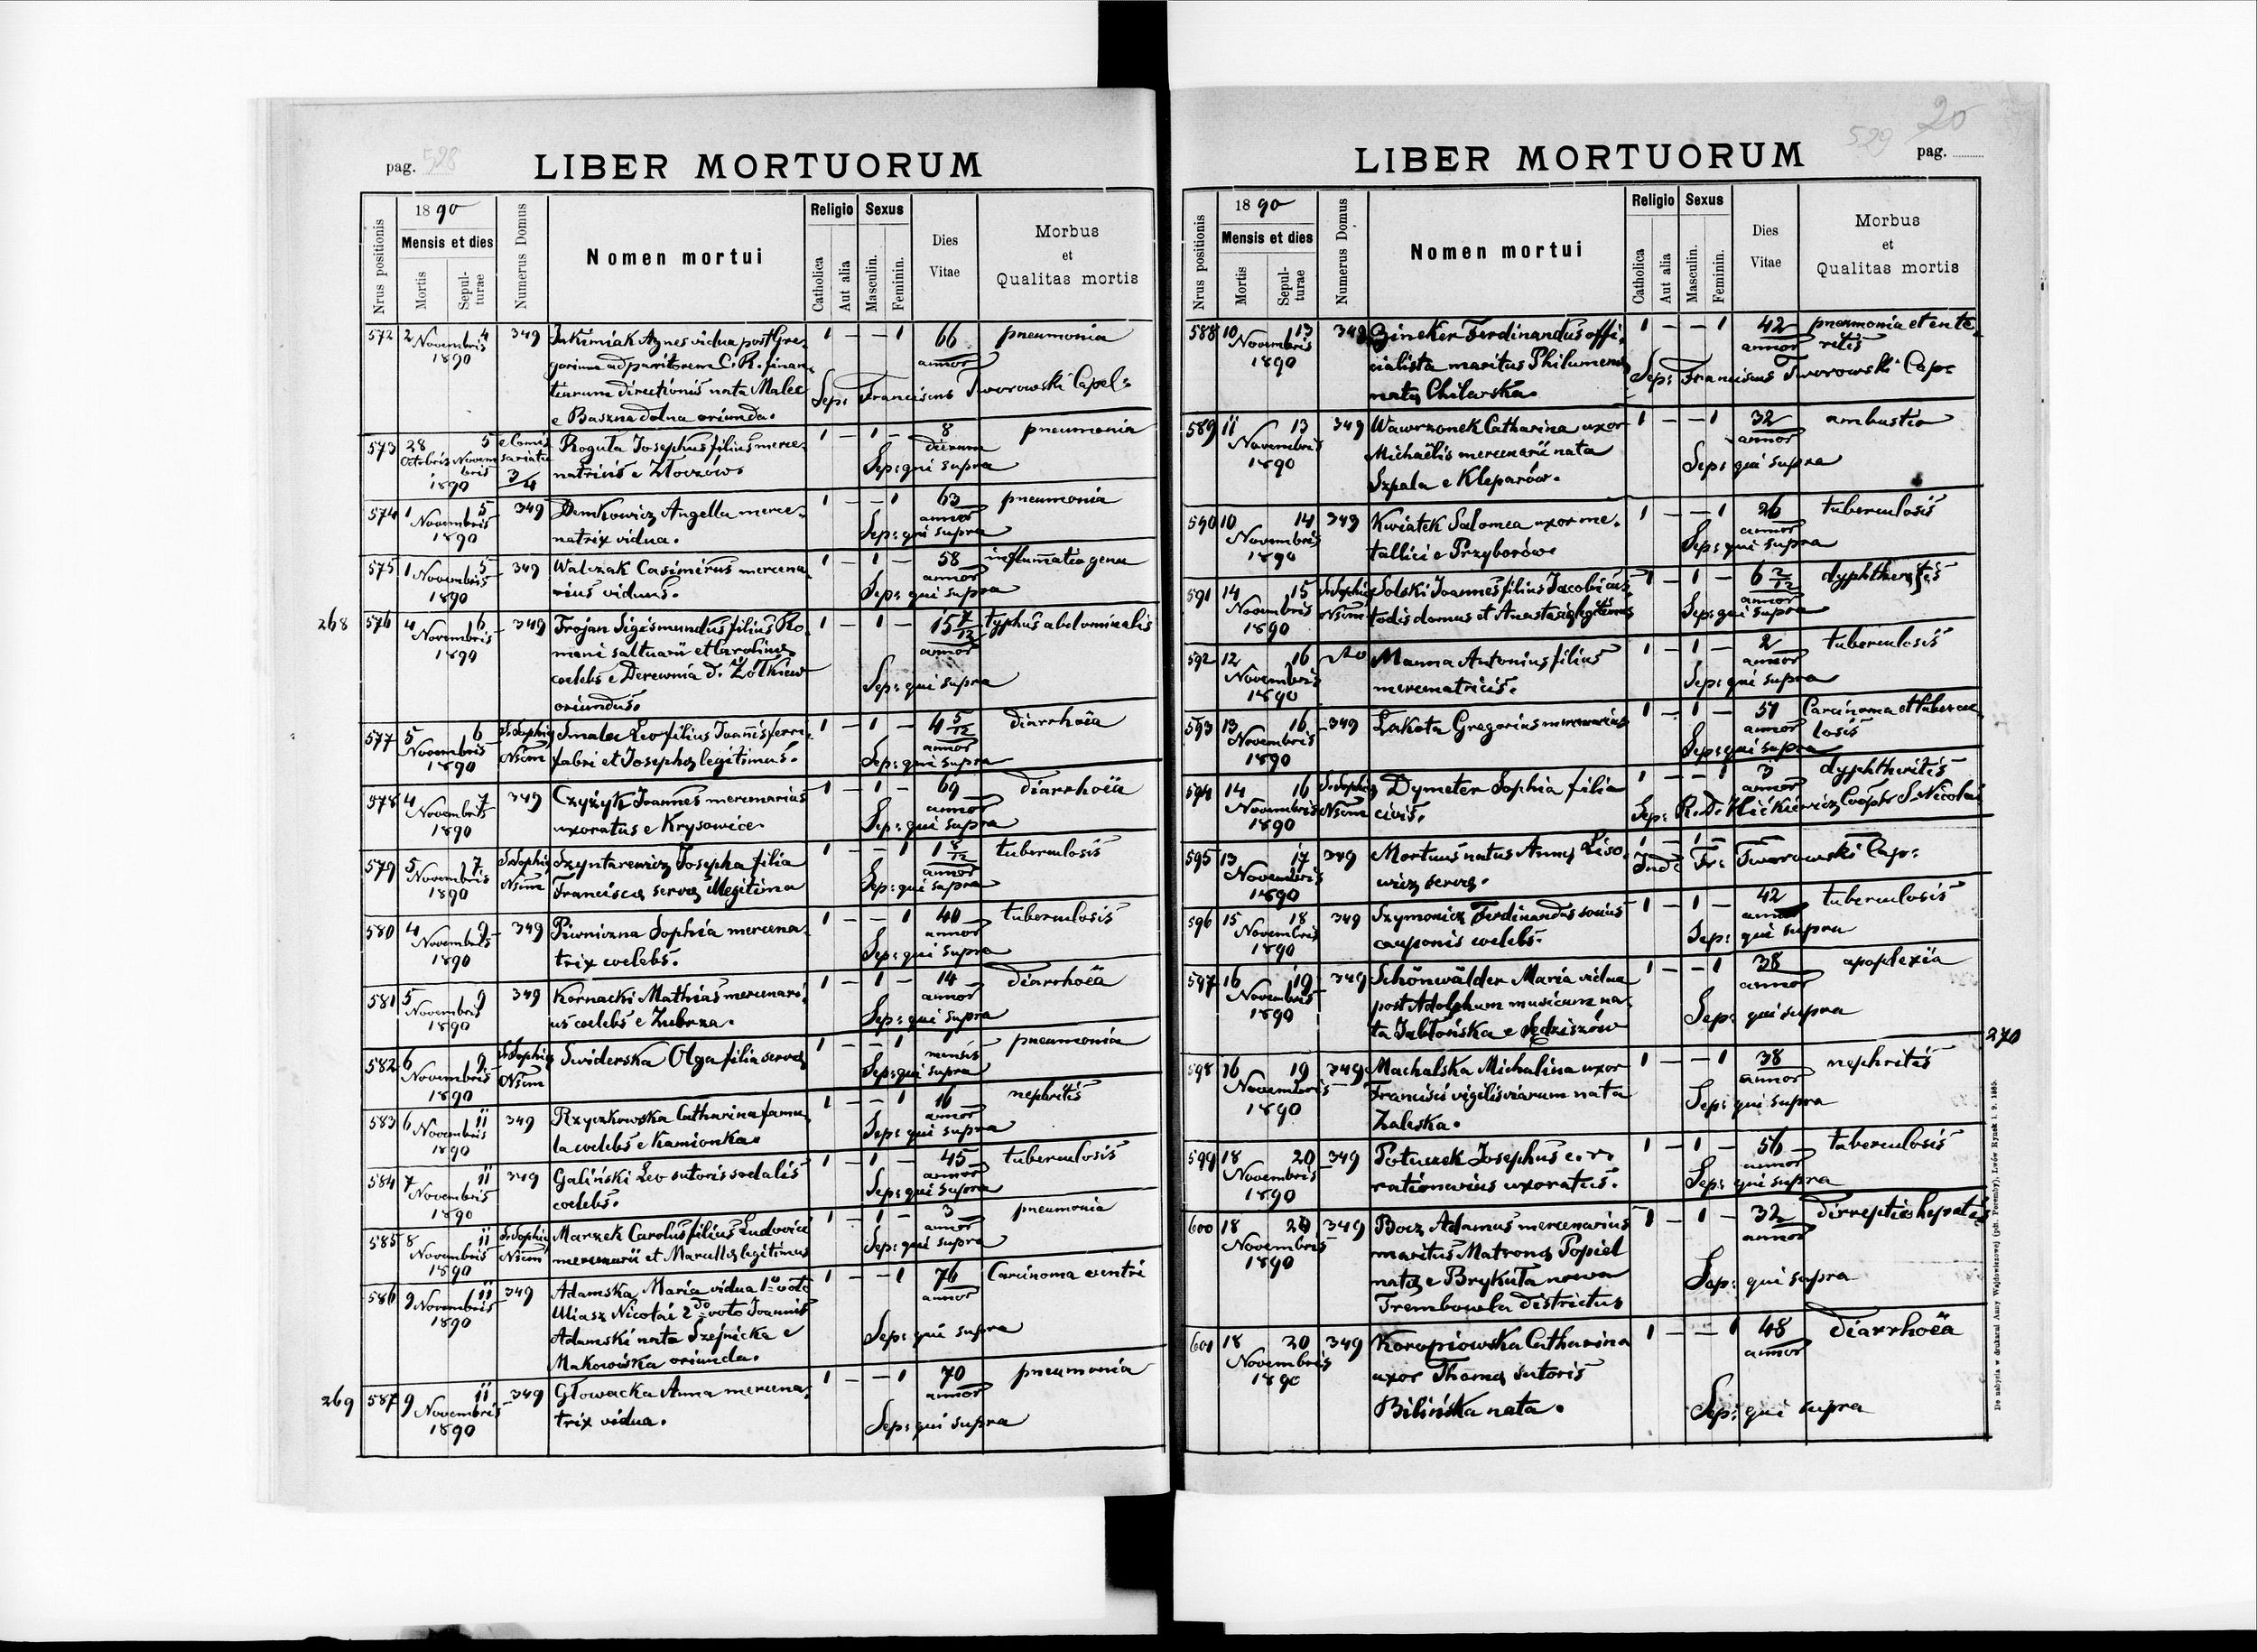 pag. 528
LIBER MORTUORUM
Nrus positionis
1890
Mensis et dies
Mortis
Sepul-
turae
Numerus Domus
Nomen mortui
Religio
Catholica
Aut alia
Sexus
Masculin.
Feminin.
Dies
Vitae
Morbus
et
Qualitas mortis
572 2 4 349 Agnes vidua post Gre- 1 – – 1 66 pneumonia
Novembris gorium apparitorem C. R. finan- annor
1890 tiarum directionis nata Malec Sep: Franciscus Tworowski Capel:
e Baszna dolna oriunda.
573 28 5 e Comis Rogula Josephus filius merce- 1 – 1 – 8 pneumonia
Octobris Novem sariatu natricis e Złoczów. dierum
bris 3/4 Sep: qui supra
1890
574 1 5 349 Demkowicz Angella merce- 1 – – 1 63 pneumonia
Novembris natrix vidua. annor
1890 Sep: qui supra
575 1 5 349 Walczak Casimirus mercena- 1 – 1 – 58 inflammatio genu
Novembris rius viduus. annor
1890 Sep: qui supra
268 576 4 6 349 Trojan Sigismundus filius Ro- 1 – 1 – 15 7/12 typhus abdominalis
Novembris mani saltuarii et Carolinae annor
1890 coelebs e Derewnia d. Żółkiew Sep: qui supra
oriundus.
577 5 6 S. Sophia Smalec Leo filius Joannis ferri- 1 – 1 – 4 5/12 diarrhoëa
Novembris Nsum fabri et Josephae legitimus. annor
1890 Sep: qui supra
578 4 7 349 Czyżyk Joannes mercenarius 1 – 1 – 69 diarrhoëa
Novembris uxoratus e Krysowice annor
1890 Sep: qui supra
579 5 7 S. Sophia Szyntarewicz Josepha filia 1 – – 1 1 8/12 tuberculosis
Novembris Nsum Franciscae servae illegitima annor
1890 Sep: qui supra
580 4 9 349 Piwniczna Sophia mercena- 1 – – 1 40 tuberculosis
Novembris trix coelebs. annor
1890 Sep: qui supra
581 5 9 349 Kornacki Mathias mercenari- 1 – 1 – 14 diarrhoëa
Novembris us coelebs e Zubrza. annor
1890 Sep: qui supra
582 6 9 S. Sophia Swiderska Olga filia servae 1 – – 1 mensis pneumonia
Novembris Nsum Sep: qui supra
1890
583 6 11 349 Rzyczkowska Catharina famu- 1 – – 1 16 nephritis
Novembris la coelebs e Kamionka. annor
1890 Sep: qui supra
584 7 11 349 Galiński Leo sutoris sodalis 1 – 1 – 45 tuberculosis
Novembris coelebs. annor
1890 Sep: qui supra
585 8 11 S. Sophia Marzek Carolus filius Ludovici 1 – 1 – 3 pneumonia
Novembris Nsum mercenarii et Marcellae legitimus annor
1890 Sep: qui supra
586 9 11 349 Adamska Maria vidua 1o voto 1 – – 1 76 Carcinoma ventri
Novembris Uliasz Nicolai 2do voto Joannis annor
1890 Adamski nata Szejnicka e Sep: qui supra
Makowiska oriunda.
269 587 9 11 349 Głowacka Anna mercena- 1 – – 1 70 pneumonia
Novembris trix vidua. annor
1890 Sep: qui supra
529 20
LIBER MORTUORUM
pag.
Nrus positionis
1890
Mensis et dies
Mortis
Sepul-
turae
Numerus Domus
Nomen mortui
Religio
Catholica
Aut alia
Sexus
Masculin.
Feminin.
Dies
Vitae
Morbus
et
Qualitas mortis
588 10 13 349 Zineker Ferdinandus offi- 1 – – 1 42 pneumonia et ente-
Novembris cialista maritus Philumenae annor ritis
1890 natae Chilewska. Sep: Franciscus Tworowski Cap:
589 11 13 349 Wawrzonek Catharina uxor 1 – – 1 32 ambustio
Novembris Michaëlis mercenarii nata annor
1890 Szpala e Kleparów. Sep: qui supra
590 10 14 349 Kwiatek Salomea uxor me- 1 – – 1 26 tuberculosis
Novembris tallici e Przyborów annor
1890 Sep: qui supra
591 14 15 S. Sophia Solski Joannes filius Jacobi cus- 1 – 1 – 6 2/12 dyphtheritis
Novembris Nsum todis domus et Anastasiae legitimus annor
1890 Sep: qui supra
592 12 16 Manna Antonius filius 1 – 1 – 2 tuberculosis
Novembris merematricis. annor
1890 Sep: qui supra
593 13 16 349 Łakota Gregorius mercenarius 1 – 1 – 51 Carcinoma et tubercu-
Novembris annor losis
1890 Sep: qui supra
594 14 16 S. Sophia Dymeter Sophia filia 1 – – 1 3 dyphtheritis
Novembris Nsum civis. annor
1890 Sep: R. D. Coopr S. Nicolai
595 13 17 349 Mortuus natus Annae Liso- 1 – 1 –
Novembris wicz servae. Ind: Fr: Tworowski Cap:
1890
596 15 18 349 Szymonicz Ferdinandus socius 1 – 1 – 42 tuberculosis
Novembris cauponis coelebs. annor
1890 Sep: qui supra
597 16 19 349 Schönwälder Maria vidua 1 – – 1 38 apoplexia
Novembris post Adolphum musicum na- annor
1890 ta Jabłońska e Sędziszów Sep: qui supra
270
598 16 19 349 Machalska Michalina uxor 1 – – 1 38 nephritis
Novembris Francisci vigilis viarum nata annor
1890 Zaleska. Sep: qui supra
599 18 20 349 Potuczek Josephus c. r. 1 – 1 – 56 tuberculosis
Novembris rationarius uxoratus. annor
1890 Sep: qui supra
600 18 20 349 Bocz Adamus mercenarius 1 – 1 – 32 dirreptio hepatis
Novembris maritus Matronae Popiel annor
1890 natae e Brykuła nowa Sep: qui supra
Trembowla districtus
601 18 20 349 Koropiowska Catharina 1 – – 1 48 diarrhoëa
Novembris uxor Thomae sutoris annor
1890 Bilińska nata. Sep: qui supra
Do nabycia w drukarni Anny Wajdowiczowej (pdt. Poremby). Lwów Rynek l. 9. 1885.